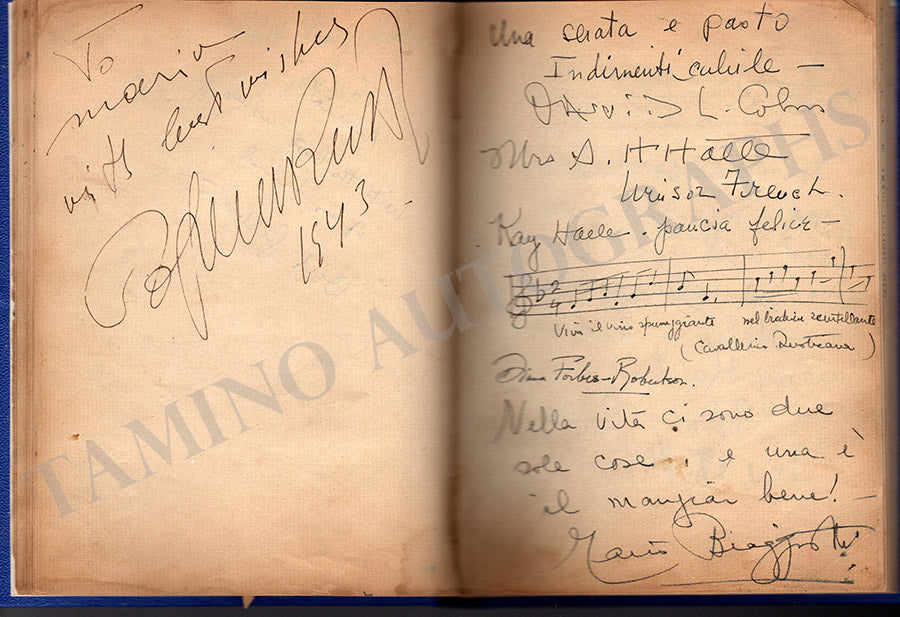 To
Maria
with best wishes
1943
Una serata e pasto
Indimenticabile –
David L. Cohn
Mrs S. H Halle
Winsor French.
Kay Halle. pancia felice –
2
4
Viva il vino spumeggiante nel bicchier scintillante
(Cavalleria Rusticana)
Forbes-Robertson.
Nella vita ci sono due
sole cose, e una è
il mangiar bene! –
Mario
TAMINO AUTOGRAPHS